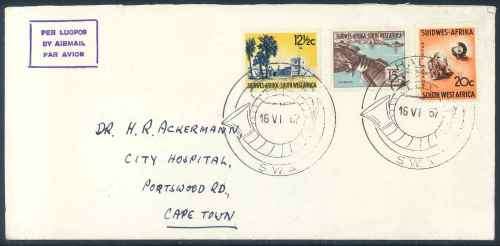 PER LUGPOS
BY AIRMAIL
PAR AVION
12½c
SUIDWES-AFRIKA SOUTH WEST AFRICA
SUIDWES-AFRIKA SOUTH WEST AFRICA
15c
SUIDWES-AFRIKA
20c
SOUTH WEST AFRICA
16 VI 67
S.W.A.
16 VI 67
S.W.A.
DR. H.R. ACKERMANN,
CITY HOSPITAL,
PORTSWOOD RD,
CAPE TOWN